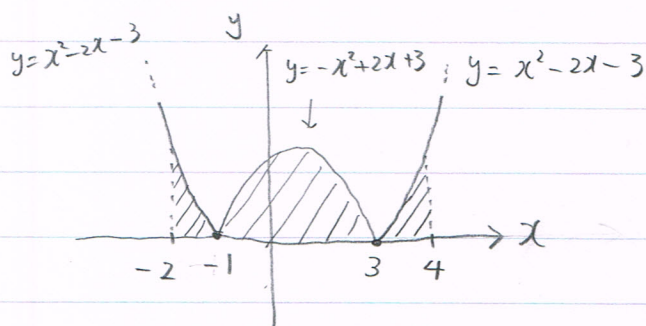 y
y=x²-2x-3
y=-x²+2x+3
y=x²-2x-3
x
-2 -1 3 4